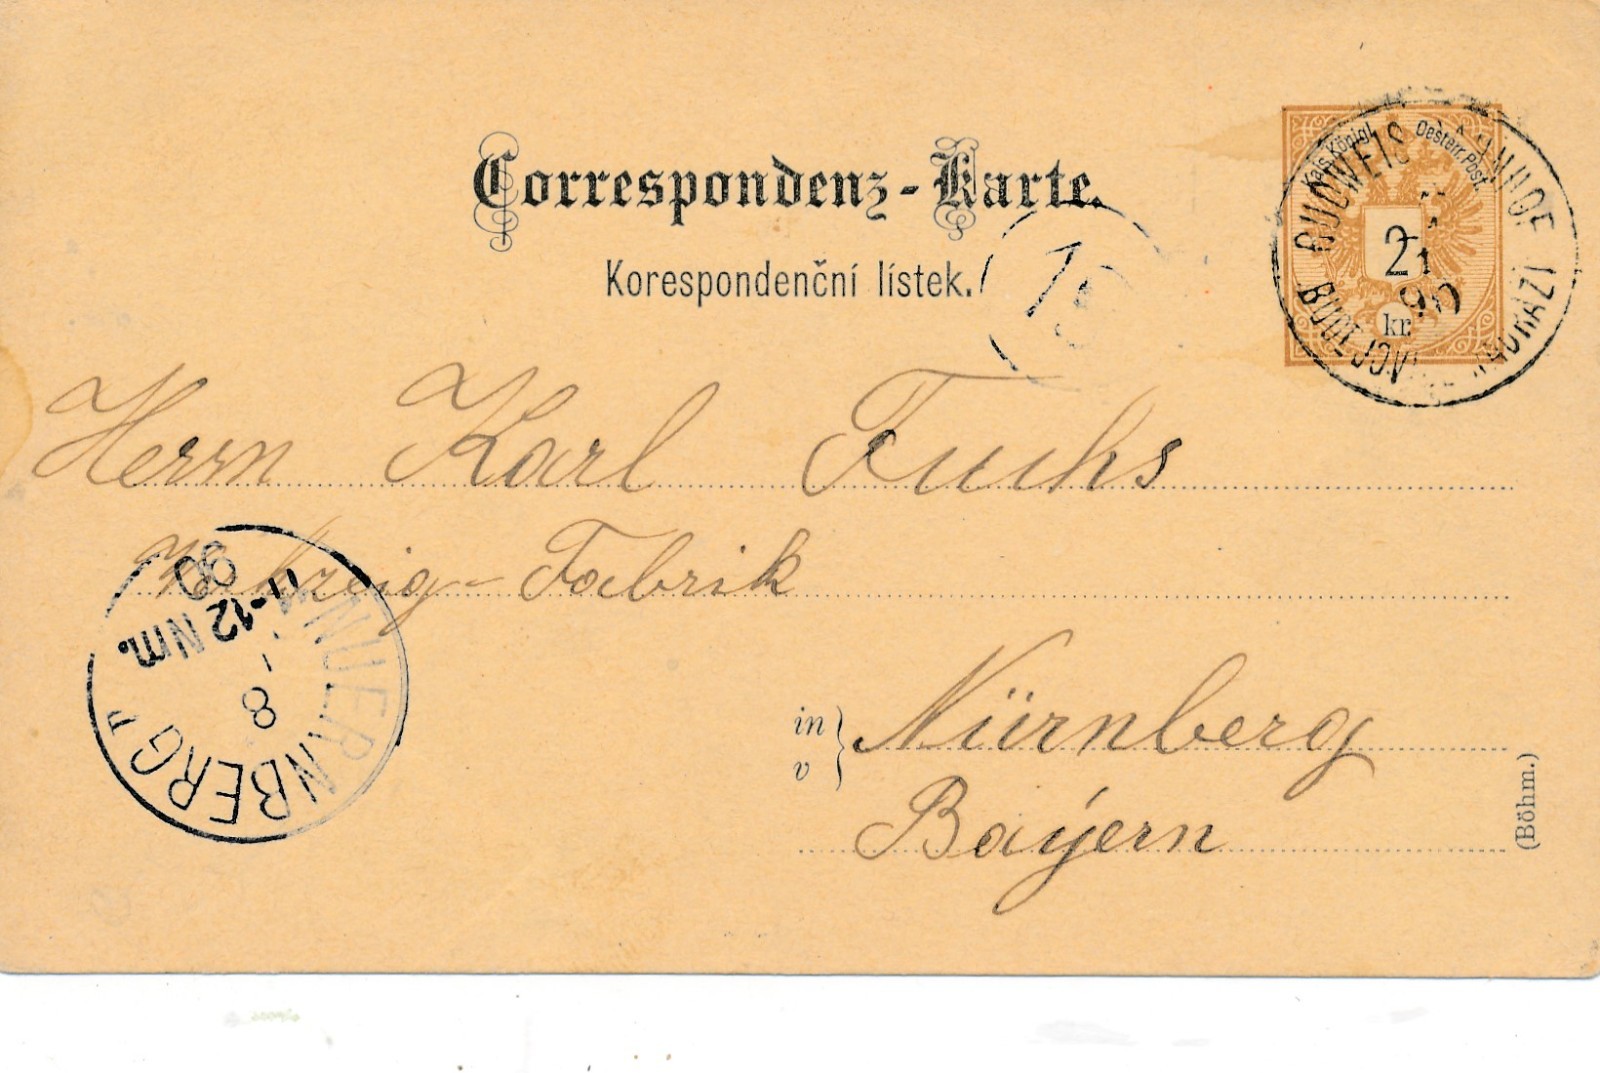 Correspondenz-Karte.
Korespondenční lístek.
Kais. Königl. Oesterr. Post.
2
kr.
BUDWEIS
90
Herrn Karl Fuchs
Fabrik
in
v
Nürnberg
Bayern
(Böhm.)
NUERNBERG
8
11-12 Nm.
90